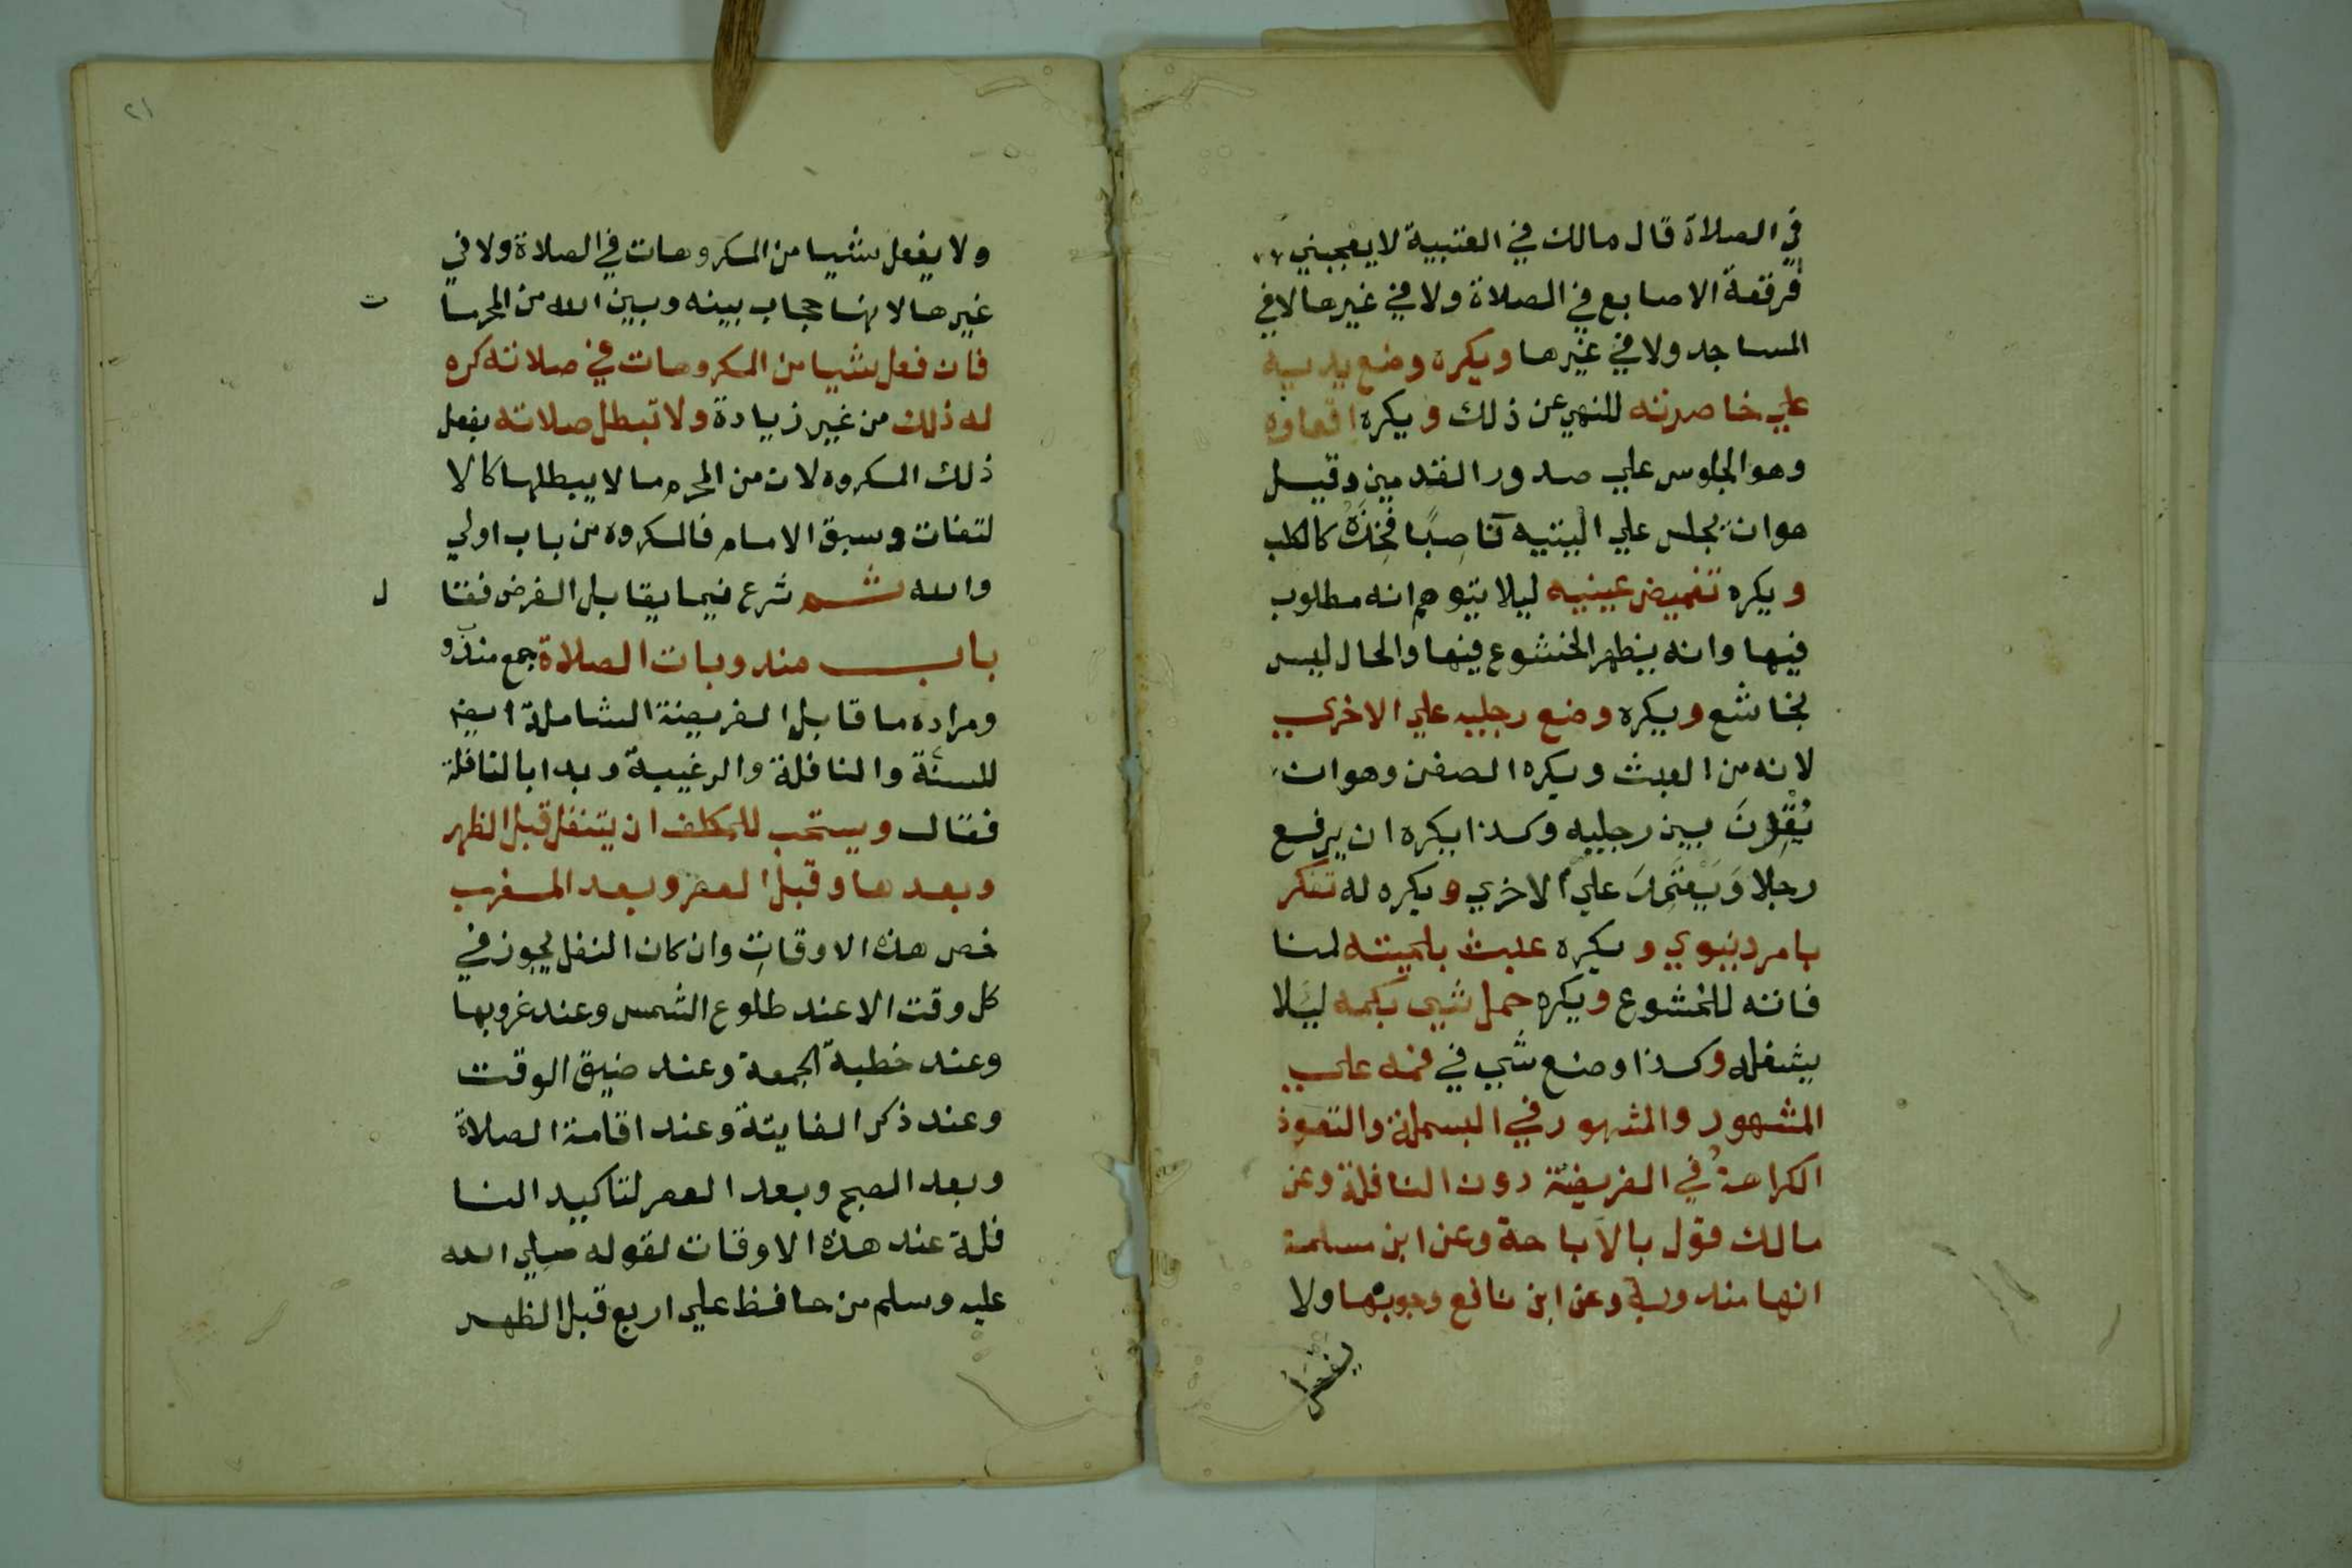 في الصلاة قال مالك في العتبية لا يعجبني
فرقعة الاصابع في الصلاة ولا في غيرها لا في
المساجد ولا في غيرها ويكره وضع يديه
علي خاصرته للنهي عن ذلك ويكره اقعاوه
وهو الجلوس علي صدور القدمين وقيل
هو ان يجلس علي اليتيه ناصبًا فخذه كالكلب
ويكره تغميض عينيه ليلا يتوهم انه مطلوب
فيها وانه يظهر الخشوع فيها والحال ليس
بخاشع ويكره وضع رجليه علي الاخري
لانه من العبث ويكره الصفن وهو ان
يُقْرِنَ بين رجليه وكذا يكره ان يرفع
رجلا وَيَعْتَمِدَ علي الاخري ويكره له تفكر
بامر دنيوي ويكره عبث بلحيته لمنا
فاته للخشوع ويكره حمل شي بكمه ليَلا
يشغله وكذا وضع شي في فمه علي
المشهور والمشهور في البسملة والتعوذ
الكراهةُ في الفريضة دون النافلة وعن
مالك قول بالاباحة وعن ابن مسلمة
انها مندوبة وعن ابن نافع وجوبها ولا
يفعل
٢١
ولا يفعل شيا من المكروهات في الصلاة ولا في
غيرها لانها حجاب بينه وبين الله من المحرما ت
فان فعل شيا من المكروهات في صلاته كره
له ذلك من غير زيادة ولا تبطل صلاته بفعل
ذلك المكروه لان من المحرم ما لا يبطلها كالا
لتفات وسبق الامام فالمكروه من باب اولي
والله ثم شرع فيما يقابل الفرض فقا ل
باب مندوبات الصلاة جمع مندو
ومراده ما قابل الفريضة الشاملة ايضا
للسنة والنافلة والرغيبة وبدا بالنافلة
فقال ويستحب للمكلف ان يتنفل قبل الظهر
وبعدها وقبل العصر وبعد المغرب
خص هذه الاوقاتِ وان كان النفل يجوز في
كل وقت الا عند طلوع الشمس وعند غروبها
وعند خطبة الجمعة وعند ضيق الوقت
وعند ذكر الفايتة وعند اقامة الصلاة
وبعد الصبح وبعد العصر لتاكيد النا
فلة عند هذه الاوقات لقوله صلي الله
عليه وسلم من حافظ علي اربع قبل الظهر